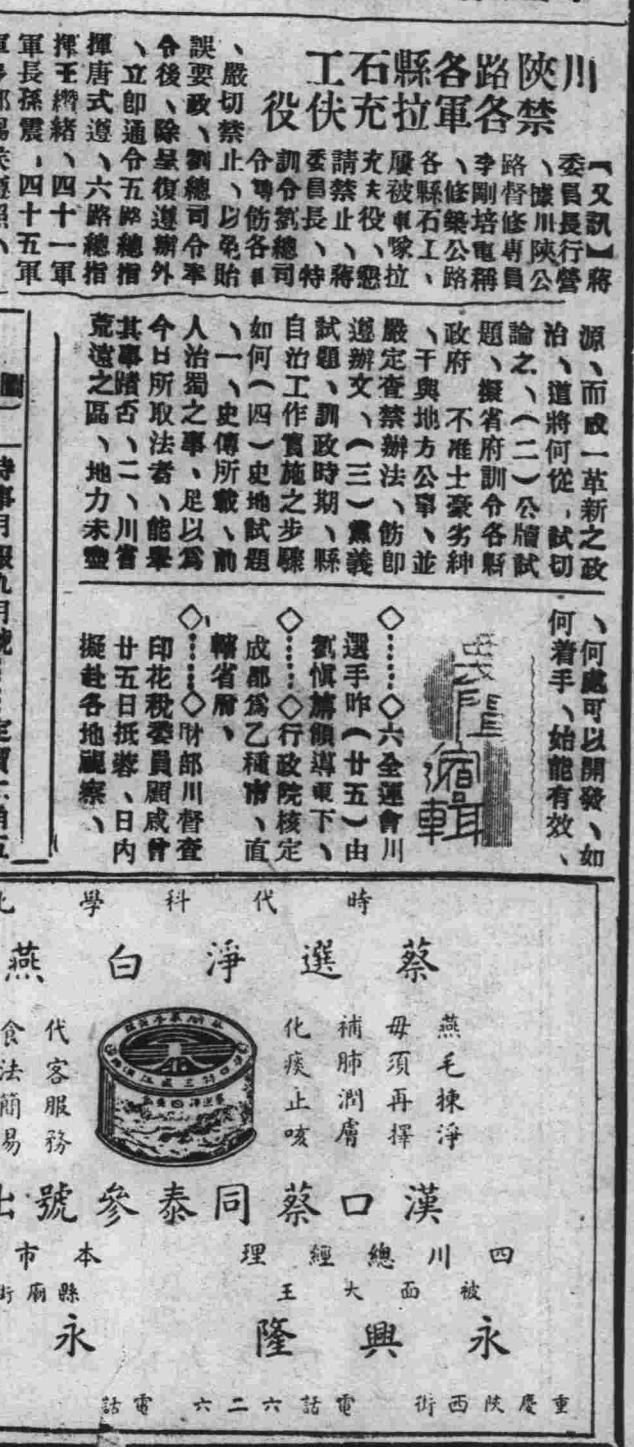 川陝路各縣石工
禁各軍拉充伕役
【又訊】蔣
委員長行營
、據川陝公
路督修專員
李剛培電稱
、修築公路
各縣石工、
屢被軍隊拉
充夫役、懇
請禁止、蔣
委員長、特
訓令劉總司
令轉飭各軍
、嚴切禁止、以免貽
誤要政、劉總司令奉
令後、除呈復遵辦外
、立卽通令五路總指
揮唐式遵、六路總指
揮王纘緒、四十一軍
軍長孫震、四十五軍
源、而成一革新之政
治、道將何從、試切
論之、（二）公牘試
題、擬省府訓令各縣
政府　不准士豪劣紳
、干與地方公事、並
嚴定查禁辦法、飭卽
遵辦文、（三）黨義
試題、訓政時期、縣
自治工作實施之步驟
如何（四）史地試題
、一、史傳所載、前
人治蜀之事、足以爲
今日所取法者、能舉
其事蹟否、二、川省
荒遠之區、地力未盡
、何處可以開發、如
何着手、始能有效、
縮輯
◇……◇六全運會川
選手昨（廿五）由
劉愼旃領導東下、
◇……◇行政院核定
成都爲乙種市、直
轄省府、
◇……◇財部川督查
印花稅委員顧咸曾
廿五日抵蓉、日內
擬赴各地視察、
時事月報九月號
時代科學化
蔡選淨白燕
燕毛揀淨
毋須再擇
補肺潤膚
化痰止咳
代客服務
食法簡易
漢口蔡同泰參號出
四川總經理
本市
被面大王
縣廟街
永興隆
永
重慶陝西街　電話六二六
電話